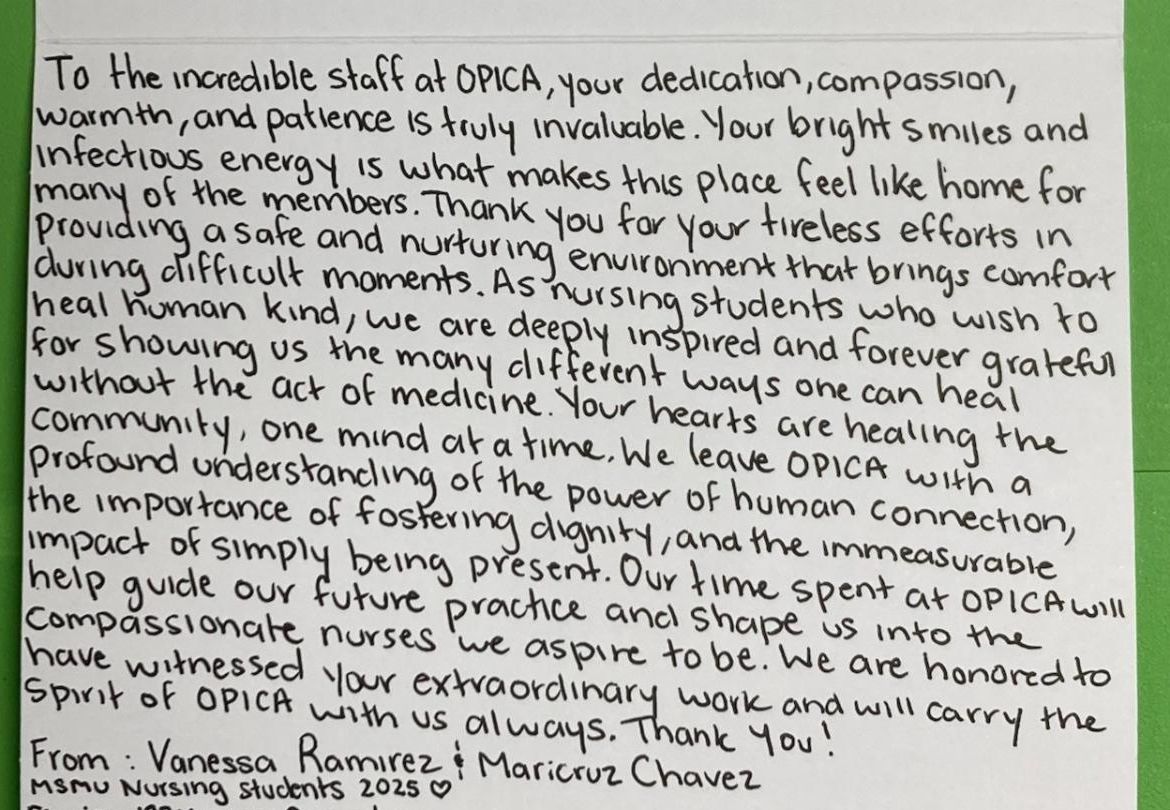 To the incredible staff at OPICA, your dedication, compassion,
warmth, and patience is truly invaluable. Your bright smiles and
infectious energy is what makes this place feel like home for
many of the members. Thank you for your tireless efforts in
providing a safe and nurturing environment that brings comfort
during difficult moments. As nursing students who wish to
heal human kind, we are deeply inspired and forever grateful
for showing us the many different ways one can heal
without the act of medicine. Your hearts are healing the
community, one mind at a time. We leave OPICA with a
profound understanding of the power of human connection,
the importance of fostering dignity, and the immeasurable
impact of simply being present. Our time spent at OPICA will
help guide our future practice and shape us into the
compassionate nurses we aspire to be. We are honored to
have witnessed your extraordinary work and will carry the
spirit of OPICA with us always. Thank you!
From: Vanessa Ramirez & Maricruz Chavez
MSMU Nursing students 2025 ♡